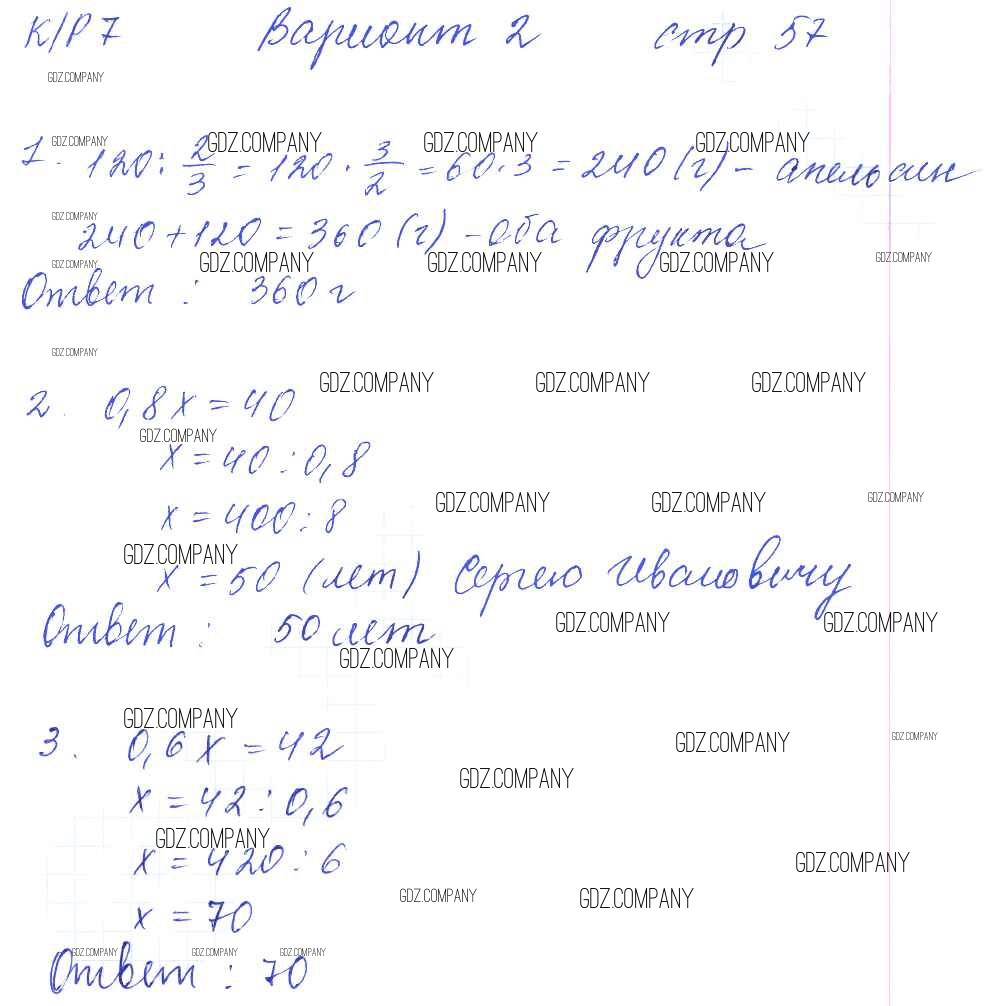 К/Р 7 Вариант 2 стр 57
GDZ.COMPANY
GDZ.COMPANY GDZ.COMPANY GDZ.COMPANY GDZ.COMPANY
1. 120 : 2/3 = 120 · 3/2 = 60 · 3 = 240 (г) – апельсин
GDZ.COMPANY
240 + 120 = 360 (г) – оба фрукта
GDZ.COMPANY GDZ.COMPANY GDZ.COMPANY GDZ.COMPANY GDZ.COMPANY
Ответ : 360 г
GDZ.COMPANY
GDZ.COMPANY GDZ.COMPANY GDZ.COMPANY
2. 0,8 x = 40
GDZ.COMPANY
x = 40 : 0,8
GDZ.COMPANY GDZ.COMPANY GDZ.COMPANY
x = 400 : 8
GDZ.COMPANY
x = 50 (лет) Сергею Ивановичу
GDZ.COMPANY GDZ.COMPANY
Ответ : 50 лет
GDZ.COMPANY
GDZ.COMPANY
3. 0,6 x = 42
GDZ.COMPANY GDZ.COMPANY
GDZ.COMPANY
x = 42 : 0,6
GDZ.COMPANY
x = 420 : 6
GDZ.COMPANY
GDZ.COMPANY GDZ.COMPANY
x = 70
GDZ.COMPANY GDZ.COMPANY GDZ.COMPANY
Ответ : 70